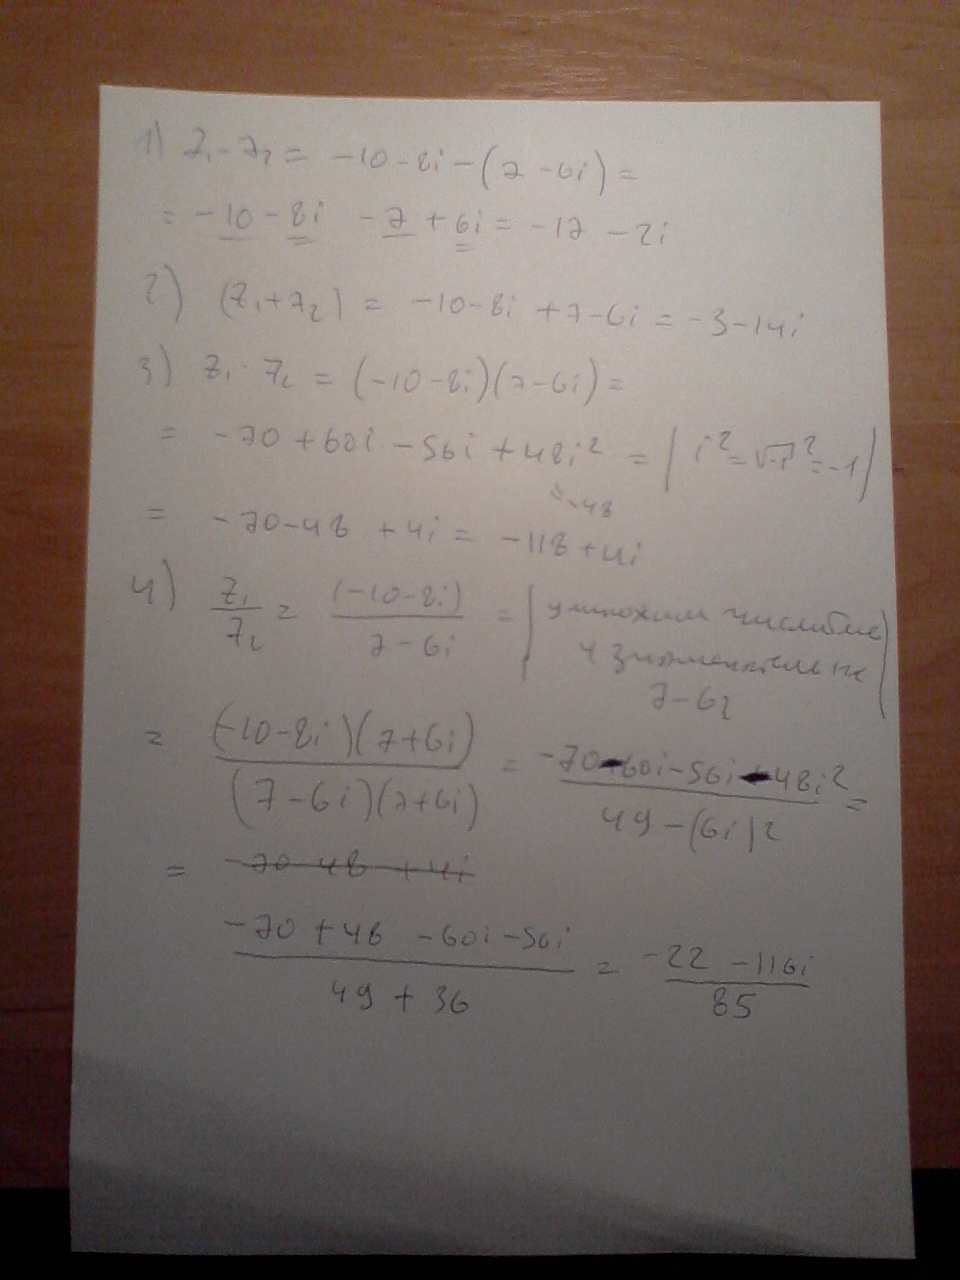 1) z₁ - z₂ = -10 - 8i - (7 - 6i) =
= -10 - 8i - 7 + 6i = -17 - 2i
2) (z₁ + z₂) = -10 - 8i + 7 - 6i = -3 - 14i
3) z₁ · z₂ = (-10 - 8i)(7 - 6i) =
= -70 + 60i - 56i + 48i² = | i² = √-1² = -1 |
= -48
= -70 - 48 + 4i = -118 + 4i
4) z₁/z₂ = (-10 - 8i)/(7 - 6i) = | умножим числитель
и знаменатель на
7 - 6i |
= (-10 - 8i)(7 + 6i)/((7 - 6i)(7 + 6i)) = (-70 - 60i - 56i - 48i²)/(49 - (6i)²) =
= -70 - 48 + 4i
(-70 + 48 - 60i - 56i)/(49 + 36) = (-22 - 116i)/85